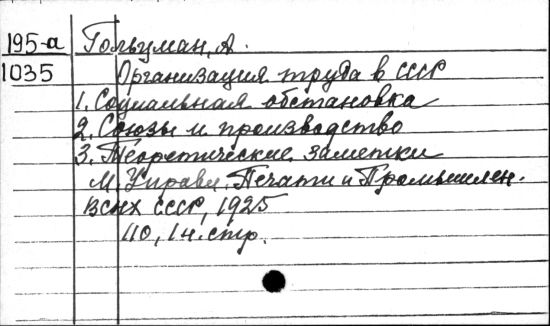 195-а Гольцман, А.
1035 Организация труда в СССР
1. Социальная обстановка
2. Союзы и производство
3. Теоретические заметки
М. Управл. Печати и Промышлен.
ВСНХ СССР, 1925
110, 1 н. стр.